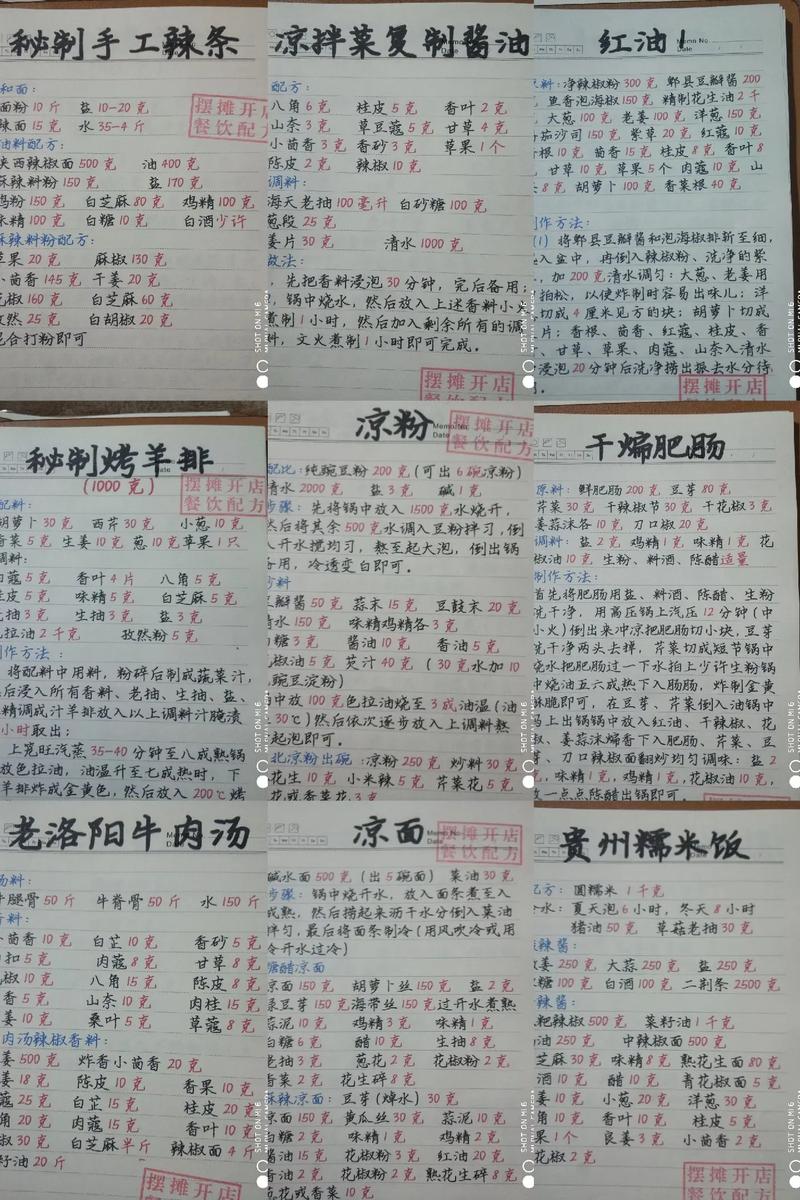 秘制手工辣条
和面：
面粉10斤 盐10-20克
辣面15克 水35-4斤
油料配方：
陕西辣椒面500克 油400克
麻辣料粉150克 盐170克
鸡粉150克 白芝麻80克 鸡精100克
味精100克 白糖10克 白酒少许
麻辣料粉配方：
草果20克 麻椒130克
小茴香145克 干姜20克
花椒160克 白芝麻60克
孜然25克 白胡椒20克
混合打粉即可
摆摊开店
餐饮配方
凉拌菜复制酱油
配方：
八角6克 桂皮5克 香叶2克
山奈3克 草豆蔻5克 甘草4克
小茴香3克 香砂3克 草果1个
陈皮2克 辣椒10克
调料：
海天老抽100毫升 白砂糖100克
葱段25克
姜片30克 清水1000克
做法：
，先把香料浸泡30分钟，完后备用；
，锅中烧水，然后放入上述香料小火
煮制1小时，然后加入剩余所有的调
料，文火煮制1小时即可完成。
摆摊开店
餐饮配方
红油1
原料：净辣椒粉300克 郫县豆瓣酱200
鱼香泡海椒150克 精制花生油2千
大葱100克 老姜100克 洋葱150克
番茄沙司150克 紫草20克 红蔻10克
香根10克 茴香15克 桂皮8克 香叶8
甘草10克 草果5个 肉蔻10克 山
8克 胡萝卜100克 香菜根40克
制作方法：
(1) 将郫县豆瓣酱和泡海椒排斩至细，
入盆中，再倒入辣椒粉、洗净的紫
，加200克清水调匀；大葱、老姜用
拍松，以使炸制时容易出味儿；洋
切成4厘米见方的块；胡萝卜切成
片；香根、茴香、红蔻、桂皮、香
、甘草、草果、肉蔻、山奈入清水
浸泡20分钟后洗净捞出振去水分待
。
摆摊开店
秘制烤羊排
(1000克)
摆摊开店
餐饮配方
配料：
胡萝卜30克 西芹30克 小葱10克
香菜5克 生姜10克 葱10克 苹果1只
调料：
白蔻5克 香叶4片 八角5克
桂皮5克 味精5克 白芝麻5克
老抽3克 生抽3克 盐3克
色拉油2千克 孜然粉5克
制作方法：
将配料中用料，粉碎后制成蔬菜汁，
然后浸入所有香料、老抽、生抽、盐、
味精调成汁羊排放入以上调料汁腌渍
小时取出；
上笼旺汽蒸35-40分钟至八成熟锅
放色拉油，油温升至七成热时，下
羊排炸成金黄色，然后放入200℃烤
凉粉
摆摊开店
餐饮配方
配比：纯豌豆粉200克(可出6碗凉粉)
清水2000克 盐3克 碱1克
步骤：先将锅中放入1500克水烧开，
然后将其余500克水调入豆粉拌习，倒
入开水搅均习，熬至起大泡，倒出锅
备用，冷透变白即可。
炒料
豆瓣酱50克 蒜末15克 豆鼓末20克
清水150克 味精鸡精各3克
白糖3克 酱油10克 香油5克
花椒油5克 芡汁40克 (30克水加10
豌豆淀粉)
中放100克色拉油烧至3成油温(油
30℃)然后依次逐步放入上调料熬
起泡即可。
北凉粉出碗：凉粉250克 炒料30克
花生10克 小米辣5克 芹菜花5克
花或香菜花3克
干煸肥肠
原料：鲜肥肠200克 豆芽80克
芹菜30克 干辣椒节30克 干花椒3克
姜蒜沫各10克 刀口椒20克
调料：盐2克 鸡精1克 味精1克 花
椒油10克 生粉、料酒、陈醋适量
制作方法：
首先将肥肠用盐、料酒、陈醋、生粉
洗干净，用高压锅上汽压12分钟(中
小火)倒出来冲凉把肥肠切小块，豆芽
洗干净两头去掉，芹菜切成短节锅中
烧水把肥肠过一下水拍上少许生粉锅
中烧油五六成热下入肠肠，炸制金黄
酥脆即可，在豆芽、芹菜倒入油锅中
马上出锅锅中放入红油、干辣椒、花
、姜蒜沫煸香下入肥肠、芹菜、豆
芽、刀口辣椒面翻炒均匀调味：盐2
，味精1克，鸡精1克，花椒油10克，
放一点点陈醋出锅即可。
老洛阳牛肉汤
汤料：
牛腿骨50斤 牛脊骨50斤 水150斤
香料：
小茴香10克 白芷10克 香砂5克
扣5克 肉蔻8克 甘草8克
花椒10克 八角15克 陈皮8克
香5克 山奈10克 肉桂15克
姜10克 桑叶5克 草蔻8克
肉汤辣椒香料：
姜500克 炸香小茴香20克
姜18克 陈皮10克 香果10克
蔻25克 白芷15克 桂皮20克
角20克 肉蔻15克 香叶10克
椒30克 白芝麻半斤 辣椒面4斤
籽油20斤
摆摊开店
凉面
摆摊开店
餐饮配方
碱水面500克 (出5碗面) 菜油30克
步骤：锅中烧开水，放入面条煮至入
成熟，然后捞起来沥干水分倒入菜油
拌匀，最后将面条制冷(用风吹冷或用
冷开水过冷)
糖醋凉面
凉面150克 胡萝卜丝150克 盐2克
绿豆芽150克 海带丝150克过开水煮熟
蒜泥10克 鸡精3克 味精1克
白糖6克 醋10克 生抽8克
老抽3克 葱花2克 花椒粉2克
香菜2克 花生碎8克
麻辣凉面：豆芽(焯水)30克
凉面150克 黄瓜丝30克 蒜泥10克
白糖2克 味精1克 鸡精2克
酱油15克 花椒粉3克 红油20克
香油2克 花椒粉2克 熟花生碎8克
葱花或香菜10克
贵州糯米饭
配方：圆糯米1千克
水：夏天泡6小时，冬天8小时
猪油50克 草菇老抽30克
糟辣酱：
姜250克 大蒜250克 盐250克
糖100克 白酒100克 二荆条2500克
辣酱：
糍粑辣椒500克 菜籽油1千克
油250克 中辣椒面500克
芝麻30克 味精8克 熟花生面80克
酒10克 醋10克 青花椒面5克
姜10克 小葱20克 洋葱30克
角10克 香叶10克 桂皮5克
果1个 良姜3克 小茴香2克
花椒2克
摆摊开店
餐饮配方
SHOT ON MI 6